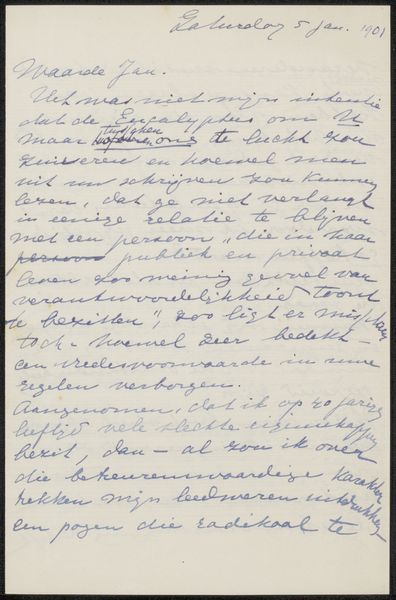 Zaturdag 5 Jan. 1901
Waarde Jan.
Het was niet mijn intentie
dat de Eucalyptus om U
maar tusschen ons te lucht zou
zuiveren en hoewel men
uit uw schrijven zou kunnen
lezen, dat ge niet verlangt
in eenige relatie te blijven
met een persoon „die in haar
persoon publiek en privaat
leven zoo weinig gevoel van
verantwoordelijkheid toont
te bezitten", zoo ligt er misschien
toch - hoewel zeer bedekt -
een vredesvoorwaarde in uwe
regelen verborgen.
Aangenomen, dat ik op 40 jarige
leeftijd vele slechte eigenschappen
bezit, dan - al zou ik over
die betreurenswaardige karakter
trekken mijn leedwezen uitdrukken -
een pogen die radikaal te